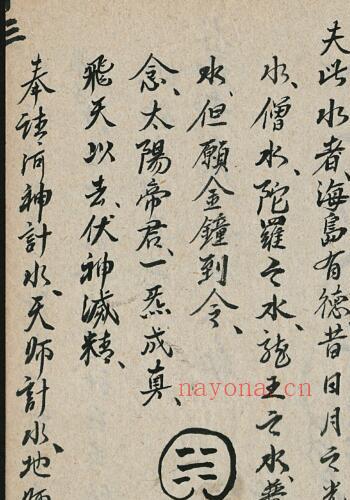 夫此水者、海島有德昔日月之光
水、僧水、陀羅之水、龍王之水、
水、但願金鐘到令、
念、太陽帝君、一炁成真、
飛天以去、伏神滅精、
奉請河神計水、天師計水、地師
三
nayona.cn